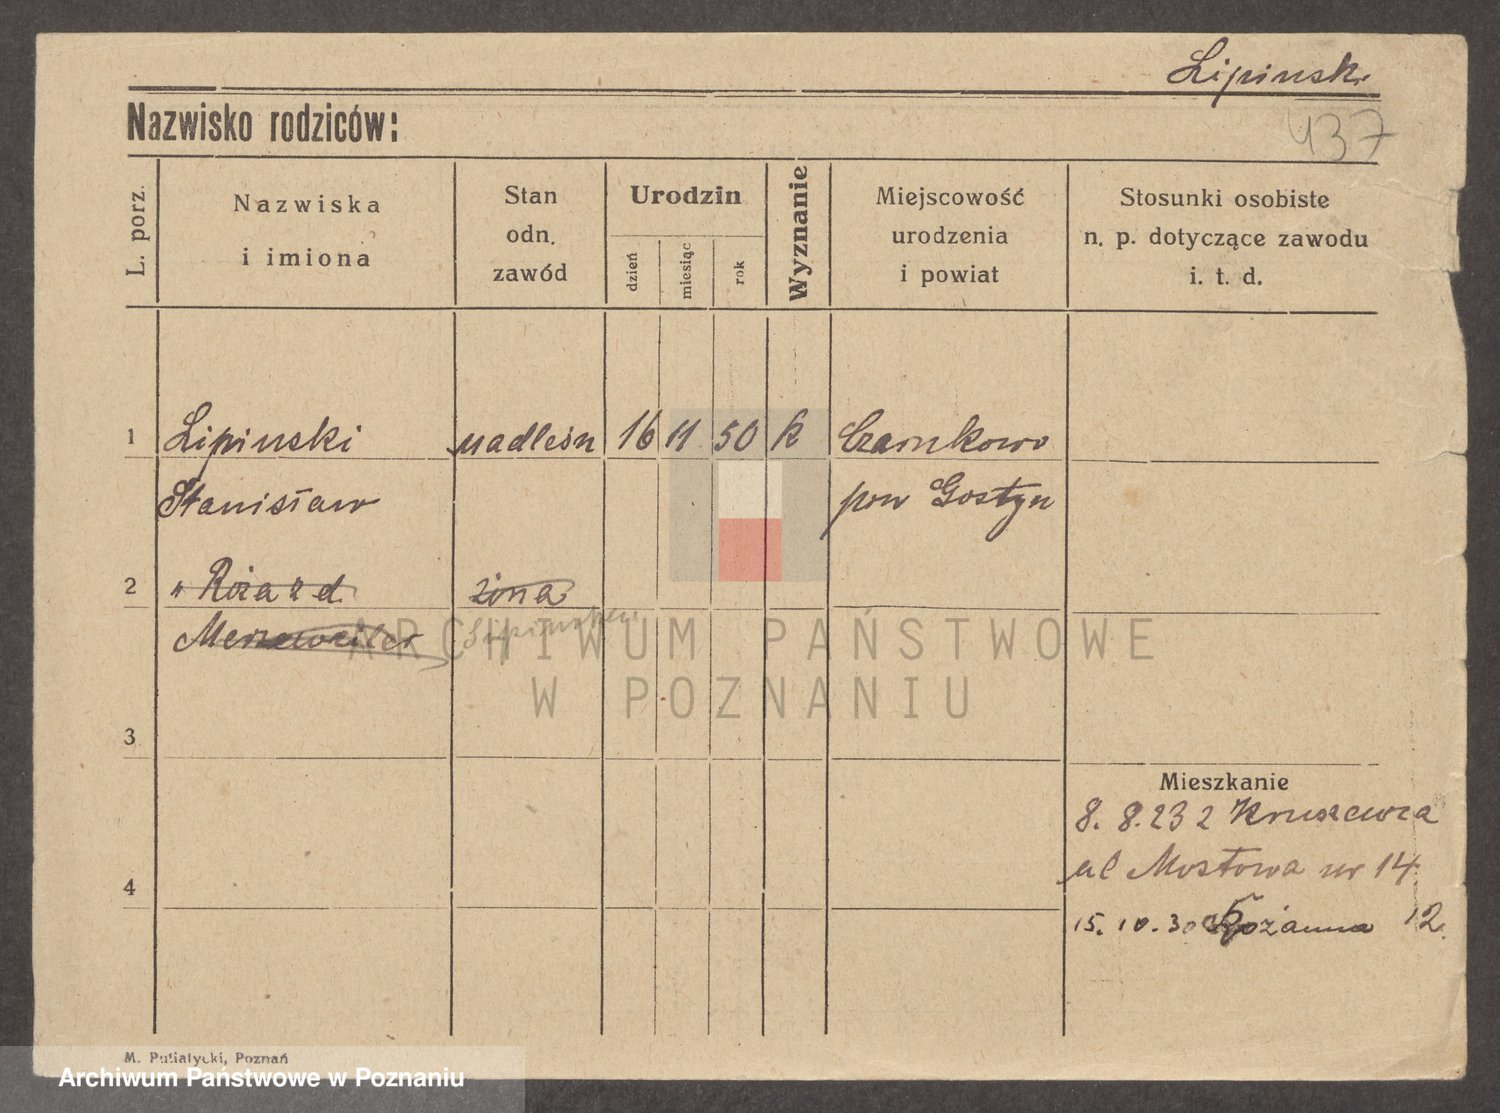 Lipinski
437
Nazwisko rodziców:
L. porz.
Nazwiska
i imiona
Stan
odn.
zawód
Urodzin
dzień
miesiąc
rok
Wyznanie
Miejscowość
urodzenia
i powiat
Stosunki osobiste
n. p. dotyczące zawodu
i. t. d.
1 Lipinski nadleśn 16 11 50 k Czarnkowo
Stanisław pow Gostyn
2 " Róża z d. żona
ARCHIWUM PAŃSTWOWE
W POZNANIU
3
Mieszkanie
8. 8. 23 z Kruszewca
4
ul Mostowa nr 14
15. 10. 30 12.
M. Putiatycki, Poznań
Archiwum Państwowe w Poznaniu